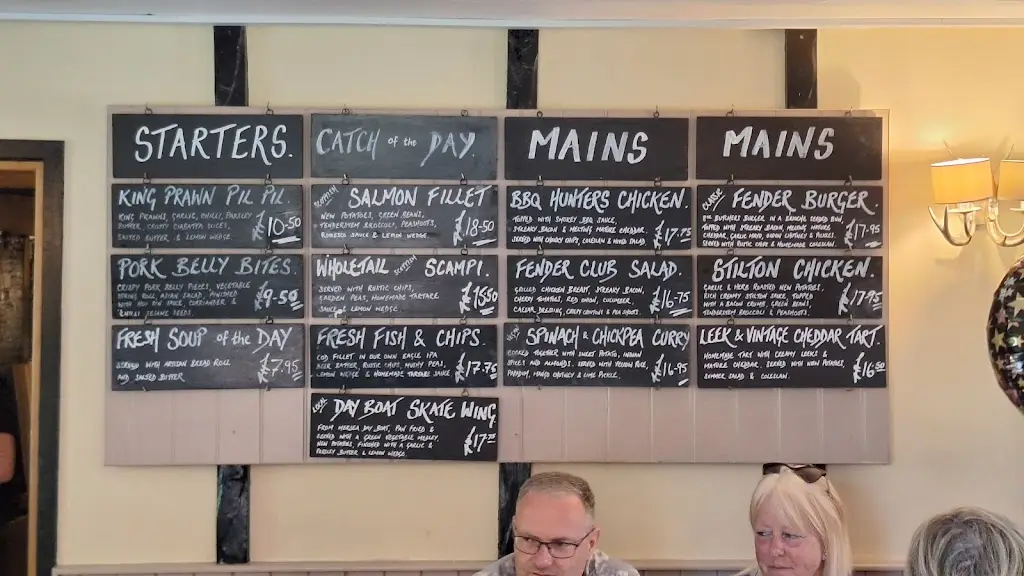 STARTERS.
KING PRAWN PIL PIL.
KING PRAWNS, GARLIC, CHILLI, PARSLEY
BUTTER, CRUSTY CIABATTA SLICES,
SALTED BUTTER & LEMON WEDGE.
£10-50
PORK BELLY BITES.
CRISPY PORK BELLY PIECES, VEGETABLE
SPRING ROLL, ASIAN SALAD, FINISHED
WITH SAUCE, CORIANDER &
SESAME SEEDS.
£9-50
FRESH SOUP of the DAY
SERVED WITH ARTISAN BREAD ROLL
AND SALTED BUTTER
£7.95
CATCH of the DAY
SCOTTISH SALMON FILLET
NEW POTATOES, GREEN BEANS,
TENDERSTEM BROCCOLI, PEASHOOTS,
ROMESCO SAUCE & LEMON WEDGE.
£18-50
WHOLETAIL SCOTTISH SCAMPI.
SERVED WITH RUSTIC CHIPS,
GARDEN PEAS, HOMEMADE TARTARE
SAUCE & LEMON WEDGE.
FRESH FISH & CHIPS.
COD FILLET IN OUR OWN EAGLE IPA
BEER BATTER, RUSTIC CHIPS, MUSHY PEAS,
LEMON WEDGE & HOMEMADE TARTARE SAUCE
£17-75
LOCAL DAY BOAT SKATE WING
FROM MERSEA DAY BOAT, PAN FRIED &
SERVED WITH A GREEN VEGETABLE MEDLEY,
NEW POTATOES, FINISHED WITH A GARLIC &
PARSLEY BUTTER & LEMON WEDGE.
£17
MAINS
BBQ HUNTERS CHICKEN.
TOPPED WITH SMOKEY BBQ SAUCE,
STREAKY BACON & MELTING MATURE CHEDDAR,
SERVED WITH CHUNKY CHIPS, COLESLAW & MIXED SALAD.
£17.75
FENDER CLUB SALAD.
GRILLED CHICKEN BREAST, STREAKY BACON,
CHERRY TOMATOES, RED ONION, CUCUMBER,
CAESAR DRESSING, CRISPY CROUTONS & PEA SHOOTS.
£16-75
SPINACH & CHICKPEA CURRY
COOKED TOGETHER WITH SWEET POTATO, INDIAN
SPICES AND ALMONDS. SERVED WITH PILAU RICE,
PAPADUM, MANGO CHUTNEY & LIME PICKLE.
£16-95
MAINS
CLASSIC FENDER BURGER.
BUTCHERS BURGER IN A BRIOCHE SEEDED BUN,
TOPPED WITH STREAKY BACON, MELTING MATURE
CHEDDAR, ONION CHUTNEY & PICKLES,
SERVED WITH RUSTIC CHIPS & HOMEMADE COLESLAW.
£17-95
STILTON CHICKEN.
GARLIC & HERB ROASTED NEW POTATOES,
RICH CREAMY STILTON SAUCE, TOPPED
WITH A BACON CRUMB, GREEN BEANS,
TENDERSTEM BROCCOLI & PEASHOOTS.
£17-95
LEEK & VINTAGE CHEDDAR TART.
HOMEMADE TART WITH CREAMY LEEKS &
MATURE CHEDDAR. SERVED WITH NEW POTATOES,
SUMMER SALAD & COLESLAW.
£16-50